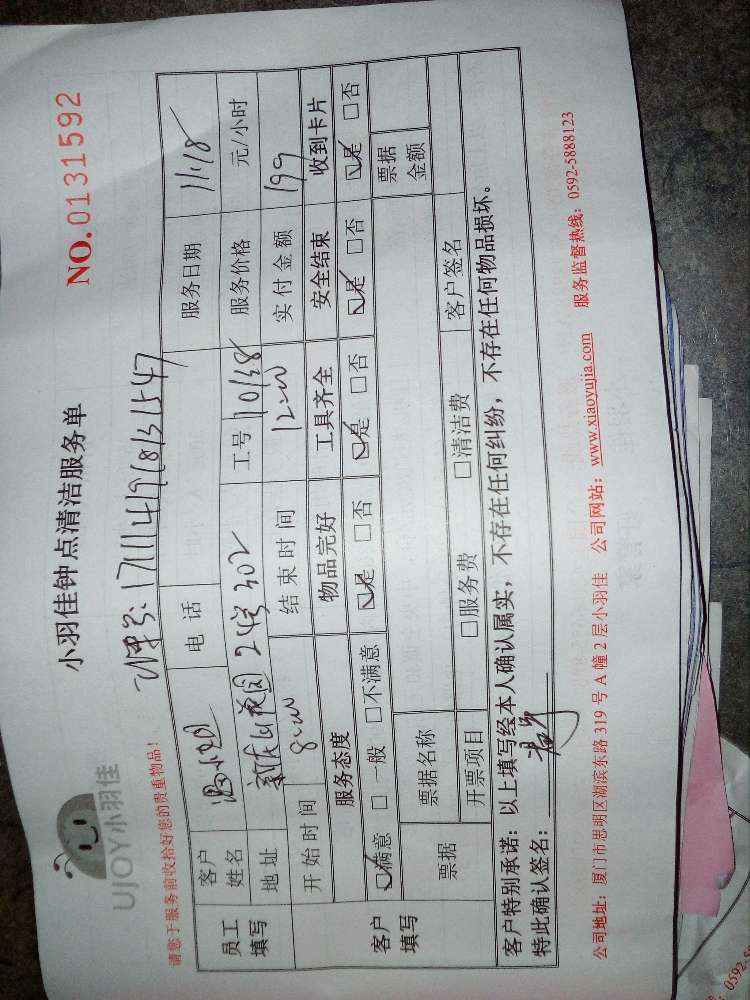 UJOY小羽佳
小羽佳钟点清洁服务单
NO.0131592
请您于服务前收拾好您的贵重物品！
员工填写 客户姓名 电话 服务日期 11.18
地址 21号302 工号 服务价格 元/小时
开始时间 8:00 结束时间 12:00 实付金额 199
客户填写 服务态度 物品完好 工具齐全 安全结束 收到卡片
☑满意 □一般 □不满意 ☑是 □否 ☑是 □否 ☑是 □否 ☑是 □否
票据 票据名称 票据金额
开票项目 □服务费 □清洁费 客户签名
客户特别承诺：以上填写经本人确认属实，不存在任何纠纷，不存在任何物品损坏。
特此确认签名：
公司地址：厦门市思明区湖滨东路 319 号 A 幢 2 层小羽佳 公司网站：www.xiaoyujia.com 服务监督热线：0592-5888123